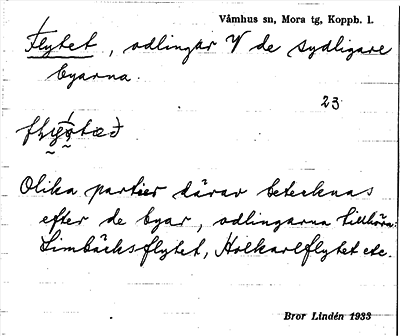 Våmhus sn, Mora tg, Koppb. l.
Flytet, odlingar V de sydligare
byarna.
23
Olika partier därav betecknas
efter de byar, odlingarna tillhöra:
Limbäcksflytet, Holkarlflytet etc.
Bror Lindén 1933